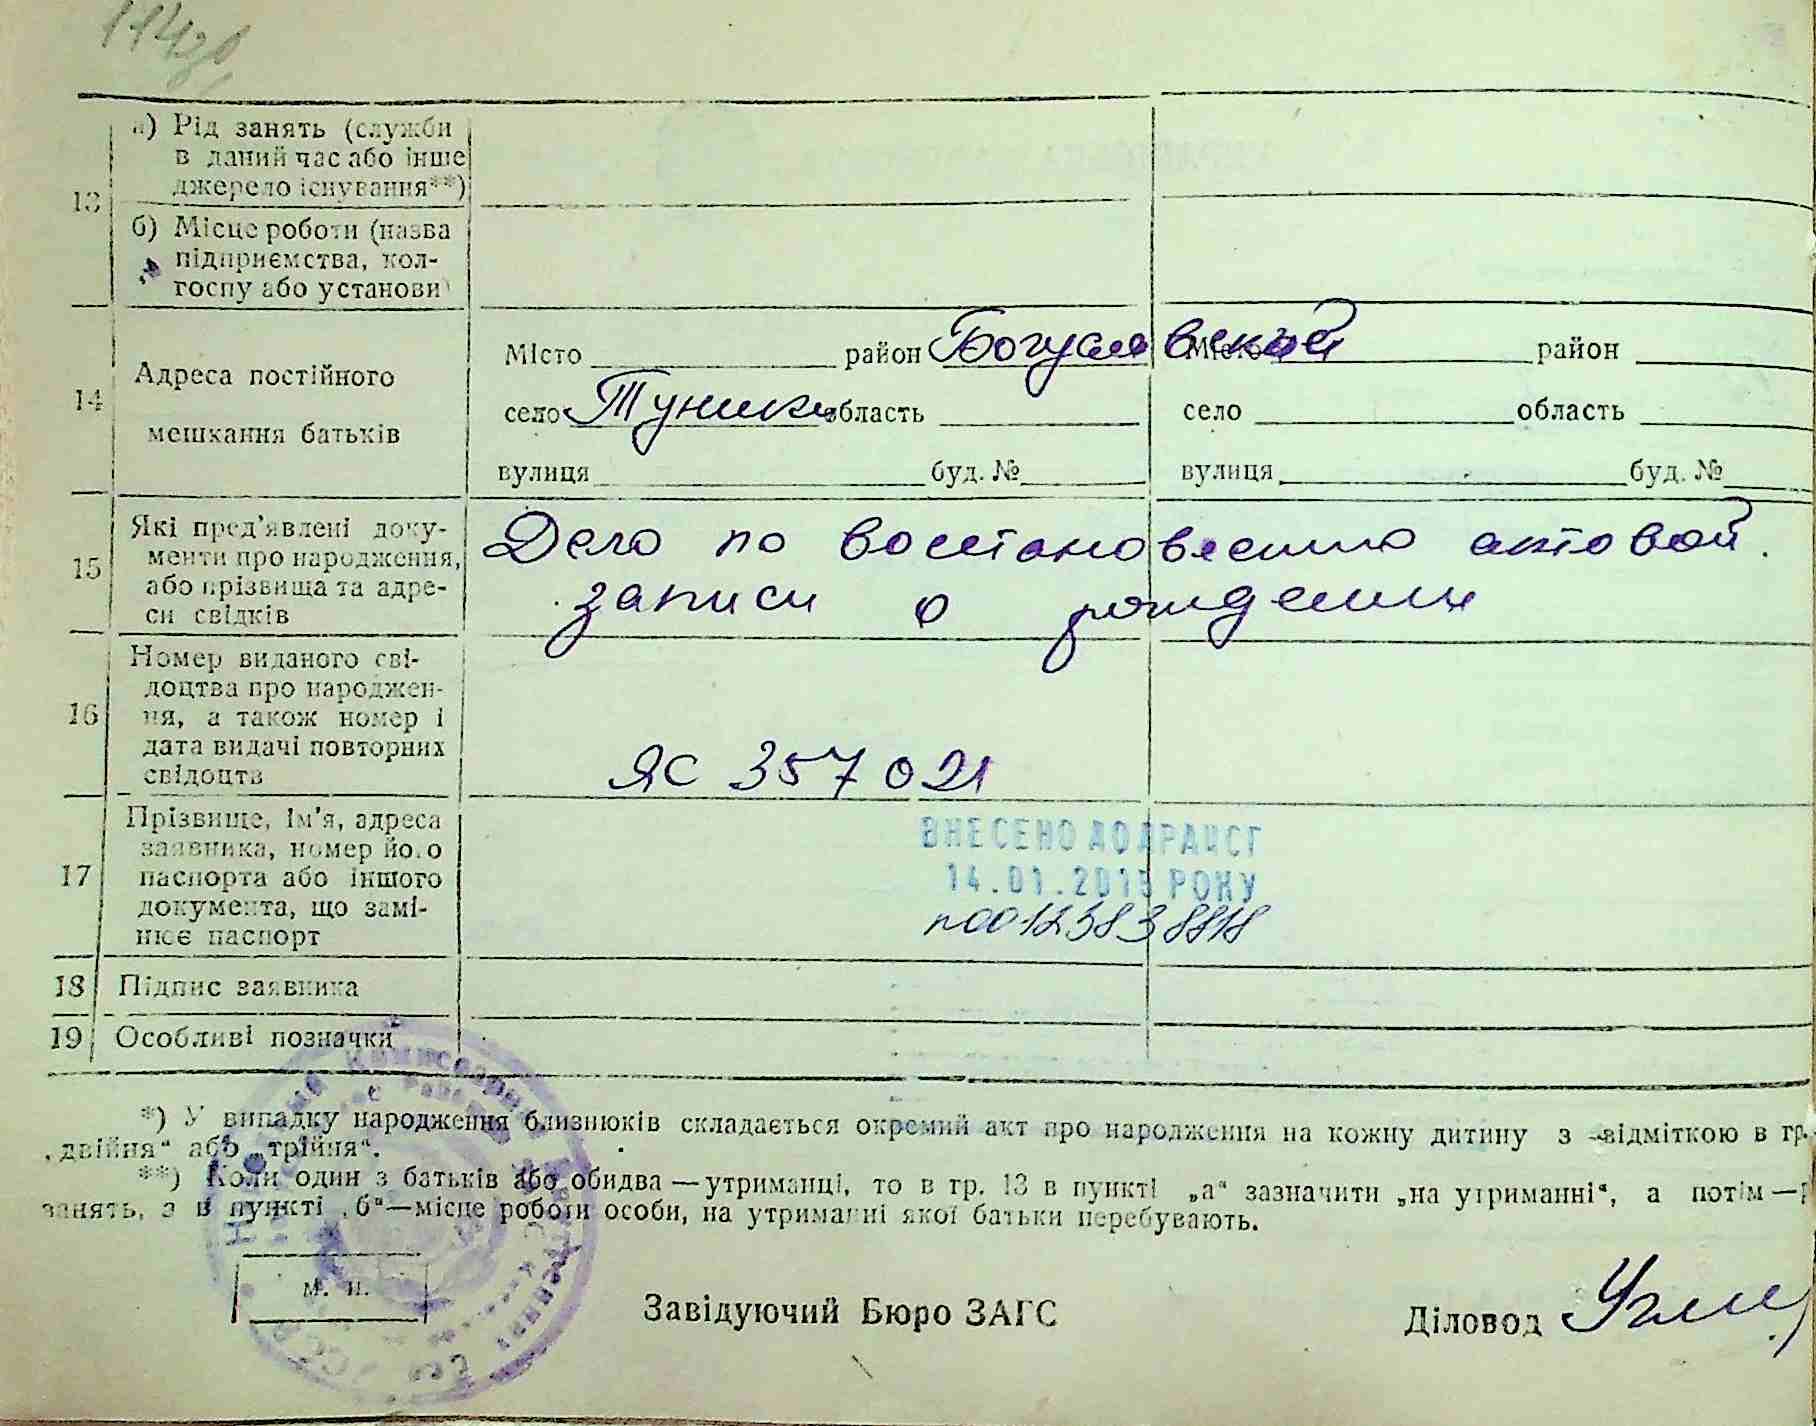 а) Рід занять (служби
в даний час або інше
джерело існування**)
13
б) Місце роботи (назва
підприємства, кол-
госпу або установи
Місто район Богуславский Місто район
14 Адреса постійного
село Туники область село область
мешкання батьків
вулиця буд. № вулиця буд. №
Які пред'явлені доку-
менти про народження,
15 або прізвища та адре-
си свідків
Дело по восстановлению актовой
записи о рождении
Номер виданого сві-
доцтва про народжен-
16 ня, а також номер і
дата видачі повторних
свідоцтв
ЯС 357021
Прізвище, ім'я, адреса
заявника, номер його
17 паспорта або іншого
документа, що замі-
нює паспорт
ВНЕСЕНО ДО ДРАЦСГ
14.01.2015 РОКУ
n00123838818
18 Підпис заявника
19 Особливі позначки
*) У випадку народження близнюків складається окремий акт про народження на кожну дитину з відміткою в гр.
„двійня“ або „трійня“.
**) Коли один з батьків або обидва — утриманці, то в гр. 13 в пункті „а“ зазначити „на утриманні“, а потім —
занять, а в пункті „б“—місце роботи особи, на утриманні якої батьки перебувають.
М. П.
Завідуючий Бюро ЗАГС Діловод